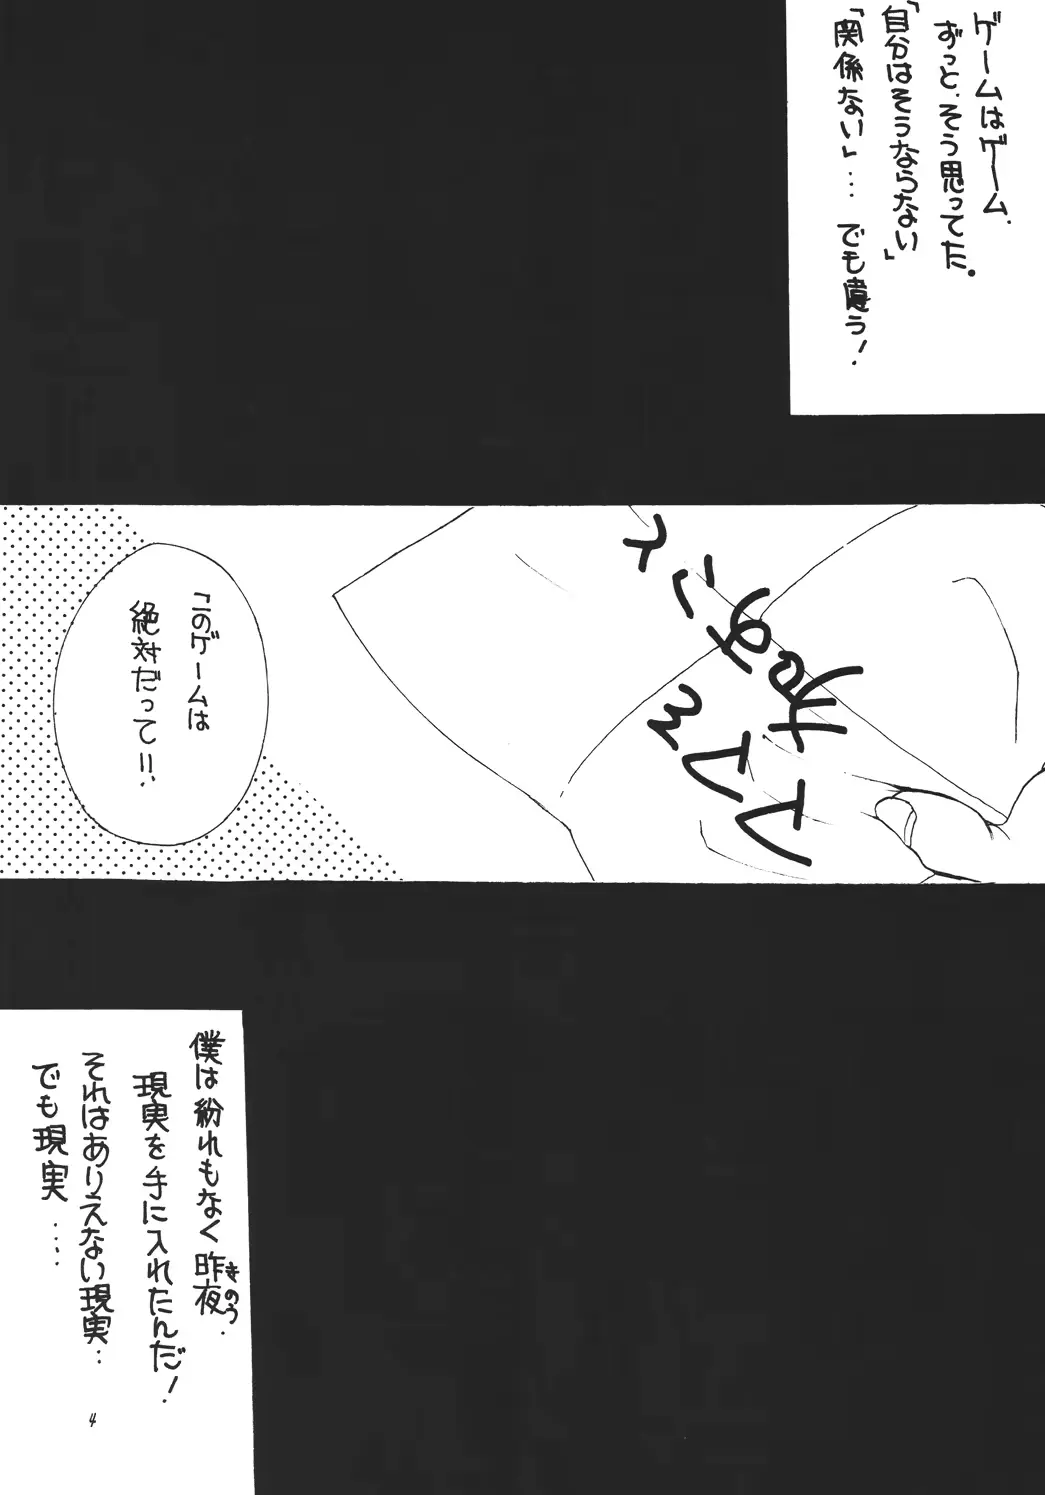 ゲームはゲーム.
ずっと.そう思ってた。
「自分はそうならない」
「関係ない」… でも違う!
「このゲームは
絶対だって!!.
僕は紛れもなく昨夜.
きのう
現実を手に入れたんだ!
それはありえない現実…
でも現実……
4